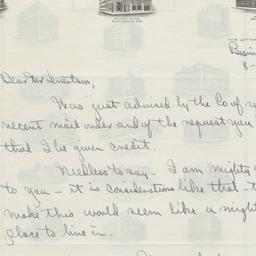 Busin
8-
Dear Mr
Was just advised by the Co of y
recent mail order and of the request you
that I be given credit.
Needless to say - I am mighty
to you - it is considerations like that - t
make this world seem like a might
place to live in.